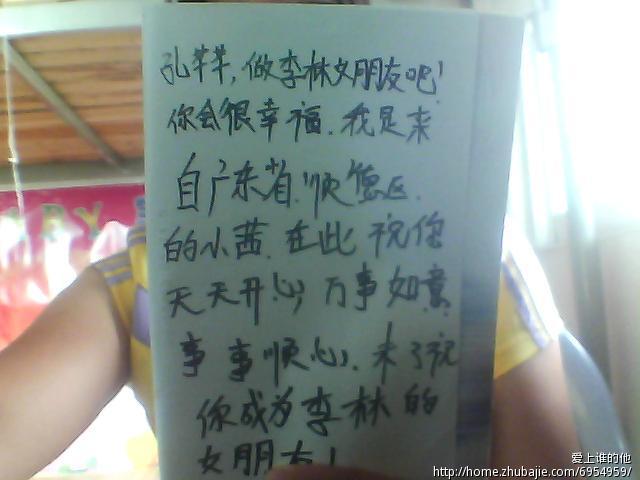 孔芊芊,做李林女朋友吧!
你会很幸福.我是来
自广东省.顺德区.
的小茜.在此祝你
天天开心,万事如意,
事事顺心.末了祝
你成为李林的
女朋友!
爱上谁的他
http://home.zhubajie.com/6954959/